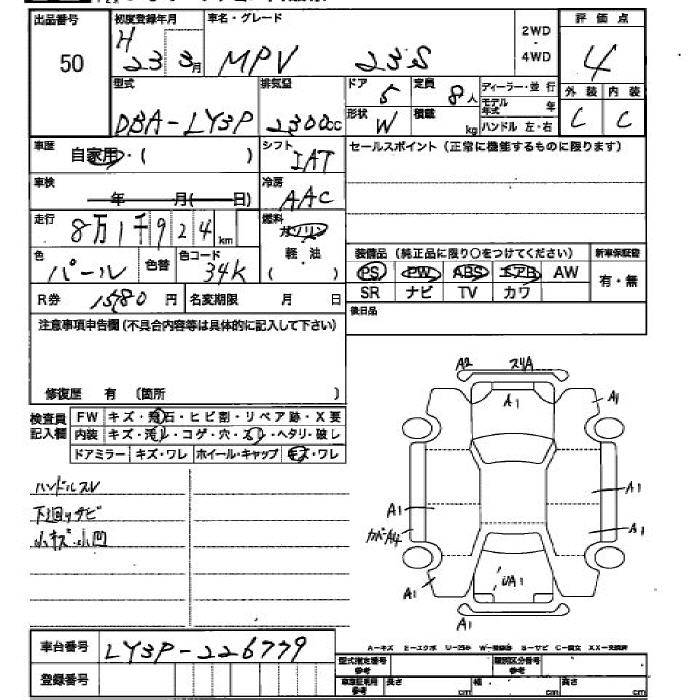 出品番号 初度登録年月 車名・グレード 2WD・4WD 評価点
50 H 23 3月 MPV 23S 4
型式 排気量 ドア 定員 ディーラー・並行 外装 内装
DBA-LY3P 2300cc 5 8人 モデル年式 年 C C
形状 W 積載 kg ハンドル 左・右
車歴 自家用・( ) シフト IAT セールスポイント (正常に機能するものに限ります)
車検 年 月( 日) 冷房 AAC
走行 8万1千924km 燃料 ガソリン 軽油 ( )
色 パール 色替 色コード 34K
装備品 (純正品に限り○をつけてください) 新車保証書
PS PW ABS エアB AW 有・無
SR ナビ TV カワ
R券 15180円 名変期限 月 日
後日品
注意事項申告欄 (不具合内容等は具体的に記入して下さい)
修復歴 有 (箇所 )
検査員記入欄 FW キズ・飛石・ヒビ割・リペア跡・X要
内装 キズ・汚レ・コゲ・穴・スレ・ヘタリ・破レ
ドアミラー キズ・ワレ ホイール・キャップ キズ・ワレ
ハンドルスレ
下廻りサビ
小キズ・小凹
A2 スリA
A1 A1
A1 A1
カバーA4 A1
A1 UA1
A1
車台番号 LY3P-226779
登録番号
A-キズ E-エクボ U-凹み W-補修跡 S-サビ C-腐食 XX-交換済
型式指定番号 参考 類別区分番号 参考
車庫証明用 参考 長さ cm 幅 cm 高さ cm